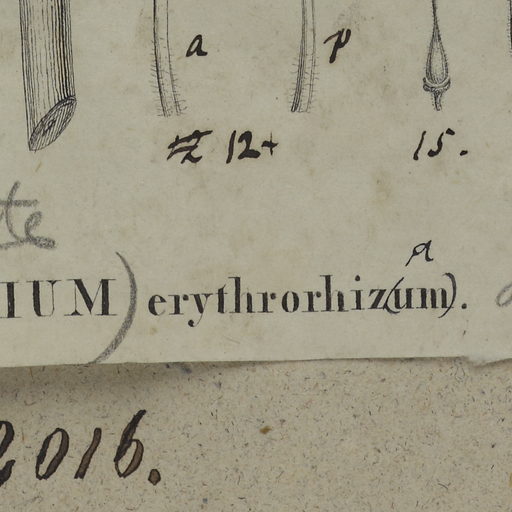 a p
12+ 15.
te
IUM) erythrorhiz(um).
a
2016.